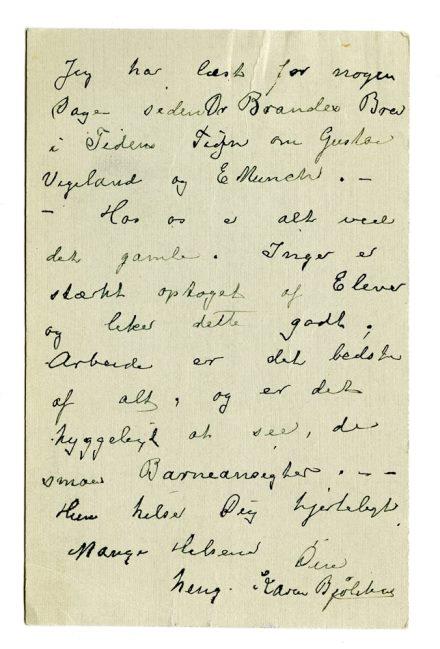 Jeg har læst for nogen
Dage siden Dr Brandes Brev
i Tidens Tegn om Gustav
Vigeland og E Munch. –
– Hos os er alt ved
det gamle. Inger er
stærkt optaget af Elever
og liker dette godt,
Arbeide er det bedste
af alt, og er det
hyggeligt at see, de
smaa Barneansigter. – –
Hun hilser Dig hjerteligt
Mange Hilsener Din
heng. Karen Bjølstad